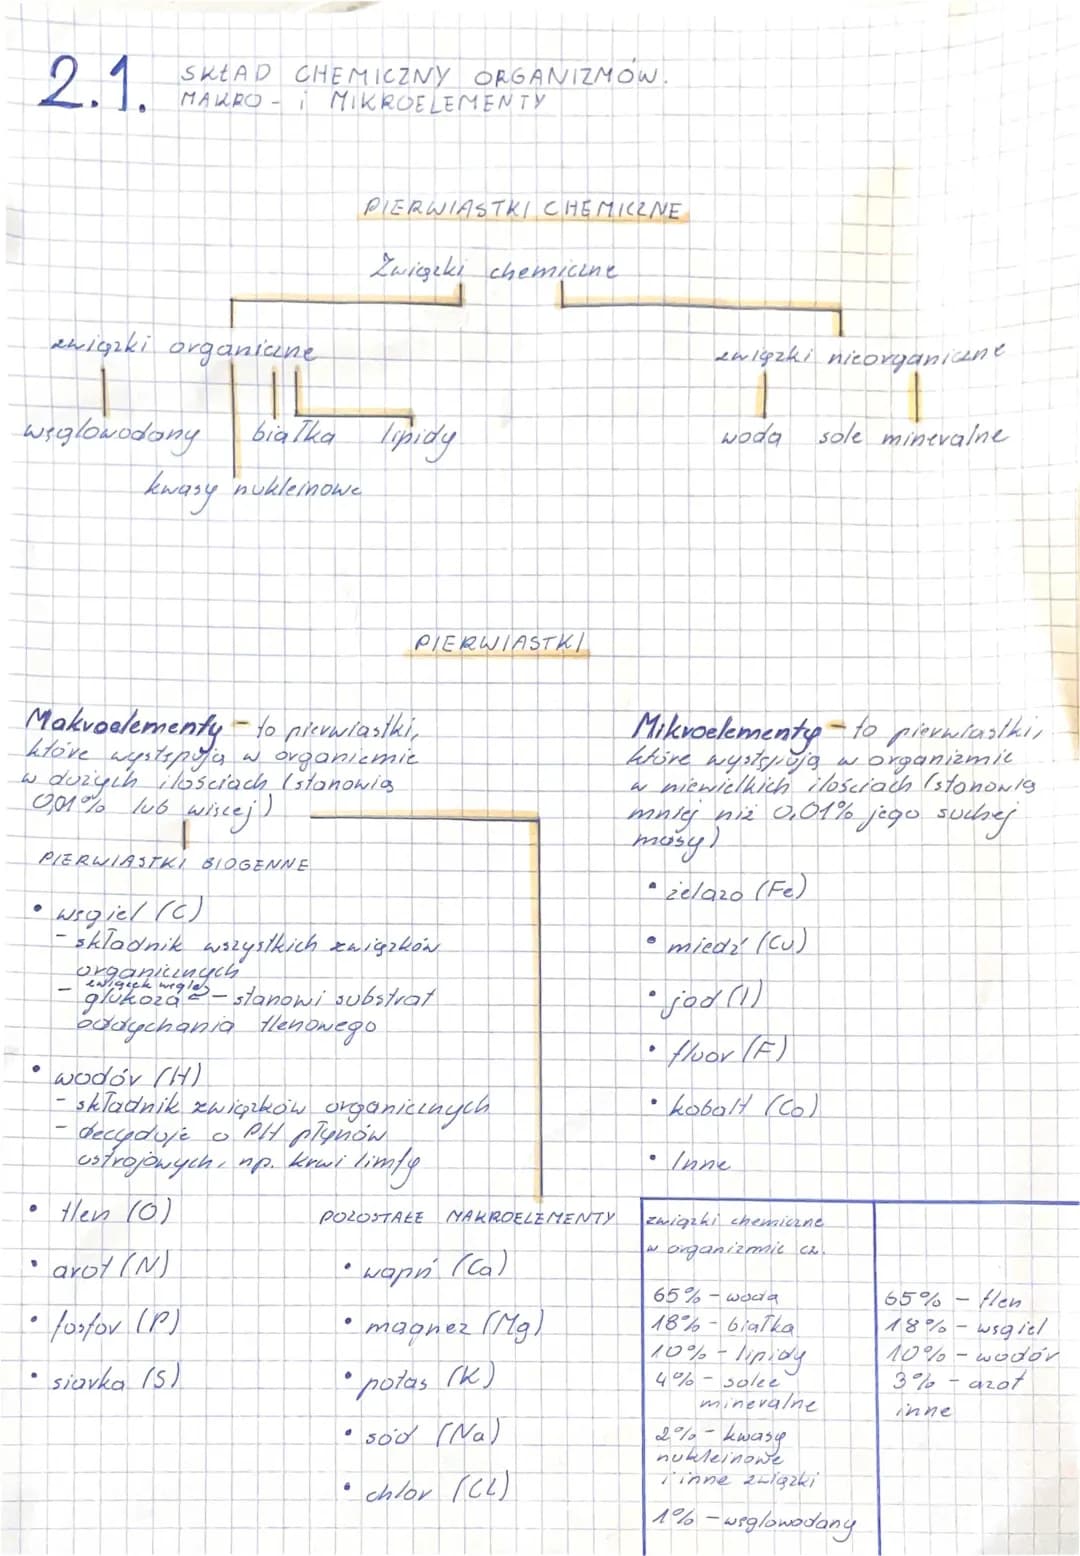 2.1. SKŁAD CHEMICZNY ORGANIZMÓW.
MAKRO - i MIKROELEMENTY
PIERWIASTKI CHEMICZNE
Związki chemiczne
związki organiczne
związki nieorganiczne
węglowodany białka lipidy
woda sole mineralne
kwasy nukleinowe
PIERWIASTKI
Makroelementy - to pierwiastki,
które występują w organizmie
w dużych ilościach (stanowią
0,01% lub więcej)
PIERWIASTKI BIOGENNE
• węgiel (C)
- składnik wszystkich związków
organicznych
związek węgla
- glukoza - stanowi substrat
oddychania tlenowego
• wodór (H)
- składnik związków organicznych
- decyduje o PH płynów
ustrojowych, np. krwi limfy
• tlen (O)
• azot (N)
• fosfor (P)
• siarka (S)
POZOSTAŁE MAKROELEMENTY
• wapń (Ca)
• magnez (Mg)
• potas (K)
• sód (Na)
• chlor (CL)
Mikroelementy - to pierwiastki,
które występują w organizmie
w niewielkich ilościach (stanowią
mniej niż 0,01% jego suchej
masy)
• żelazo (Fe)
• miedź (Cu)
• jod (I)
• fluor (F)
• kobalt (Co)
• Inne
związki chemiczne
w organizmie cz.
65% - woda
18% - białka
10% - lipidy
4% - sole
mineralne
2% - kwasy
nukleinowe
i inne związki
1% - węglowodany
65% - tlen
18% - węgiel
10% - wodór
3% - azot
inne